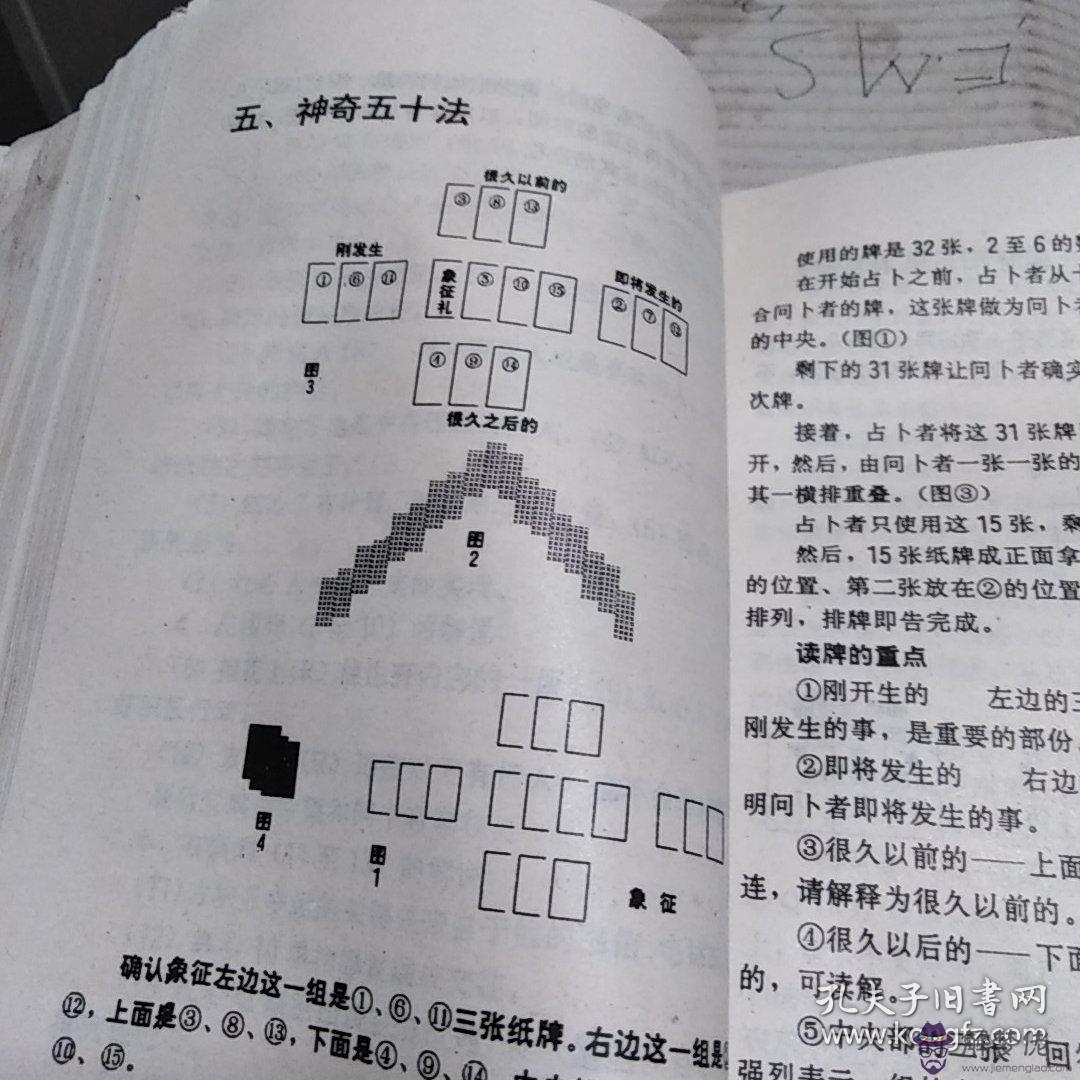 五、神奇五十法
很久以前的
③ ⑧ ⑬
刚发生
① ⑥ ⑪
象征礼
⑤ ⑩ ⑮
即将发生的
② ⑦ ⑫
图3
④ ⑨ ⑭
很久之后的
图2
图4
图1
象征
确认象征左边这一组是①、⑥、⑪三张纸牌。右边这一组是
⑫，上面是③、⑧、⑬，下面是④、⑨、⑭，
⑩、⑮。
S.W.コ
使用的牌是32张，2至6的
在开始占卜之前，占卜者从
合问卜者的牌，这张牌做为问卜
的中央。（图①）
剩下的31张牌让问卜者确实
次牌。
接着，占卜者将这31张牌
开，然后，由问卜者一张一张的
其一横排重叠。（图③）
占卜者只使用这15张，剩
然后，15张纸牌成正面拿
的位置、第二张放在②的位置
排列，排牌即告完成。
读牌的重点
①刚开生的 左边的三
刚发生的事，是重要的部份
②即将发生的 右边
明问卜者即将发生的事。
③很久以前的——上面
连，请解释为很久以前的。
④很久以后的——下面
的，可读解。
⑤中央部
强列表示
孔夫子旧书网
www.kongfz.com
www.jiemenglao.com